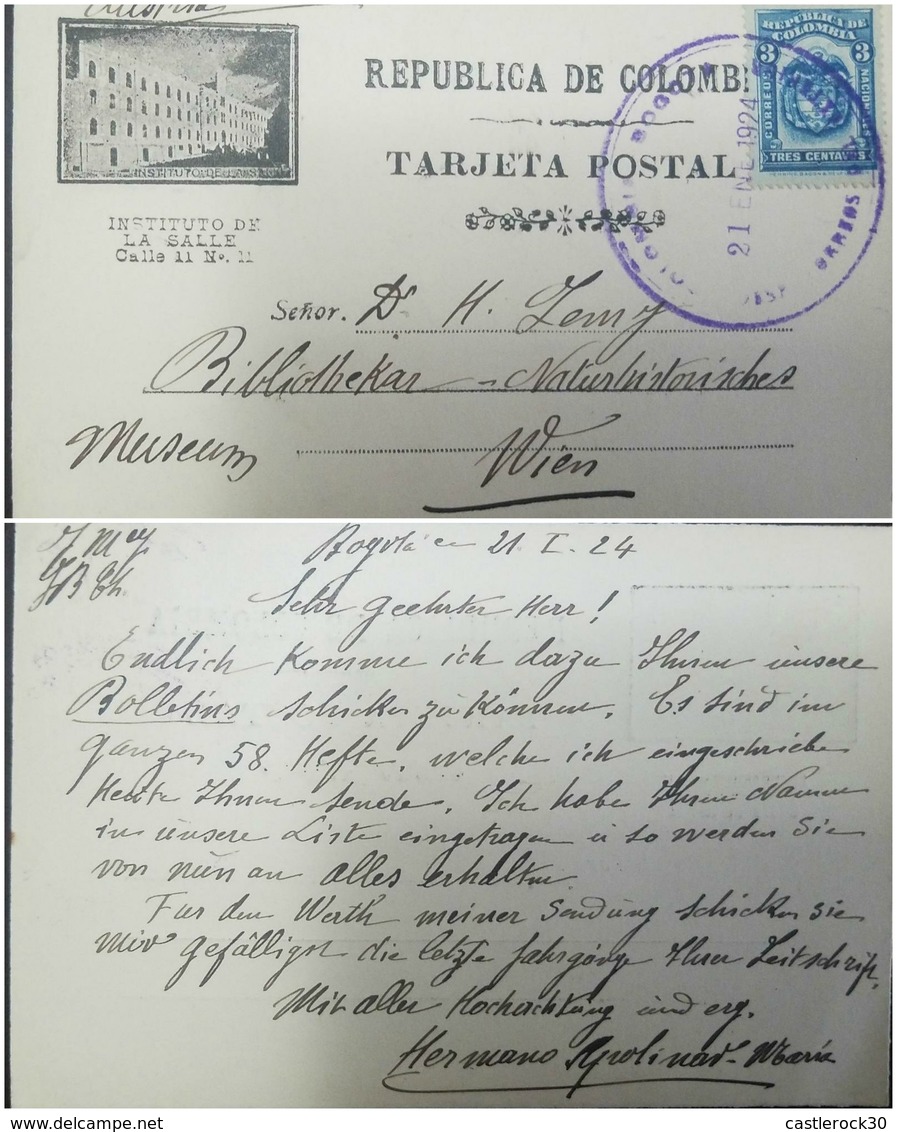 Austria
REPUBLICA DE COLOMBI
TARJETA POSTAL
INSTITUTO DE LA SALLE
INSTITUTO DE
LA SALLE
Calle 11 No. 11
REPUBLICA DE
COLOMBIA
3 3
CORREOS NACIONALES
TRES CENTAVOS
BOGOTA
21 ENE 1924
Señor. Dr H.
Bibliothekar - Naturhistorisches
Museum
Wien
Bogotá en 21. I. 24
Sehr geehrter Herr!
Endlich komme ich dazu Ihnen unsere
Bolletins schicken zu können. Es sind im
ganzen 58 Hefte, welche ich eingeschrieben
Heute Ihnen sende. Ich habe Ihren Namen
in unsere Liste eingetragen u so werden Sie
von nun an alles erhalten
Fur den Werth meiner Sendung schicken sie
mir gefälligst die letzte Jahrgänge Ihrer Zeitschrift.
Mit aller Hochachtung und erg.
Hermano Apolinar-María
www.delcampe.net
castlerock30